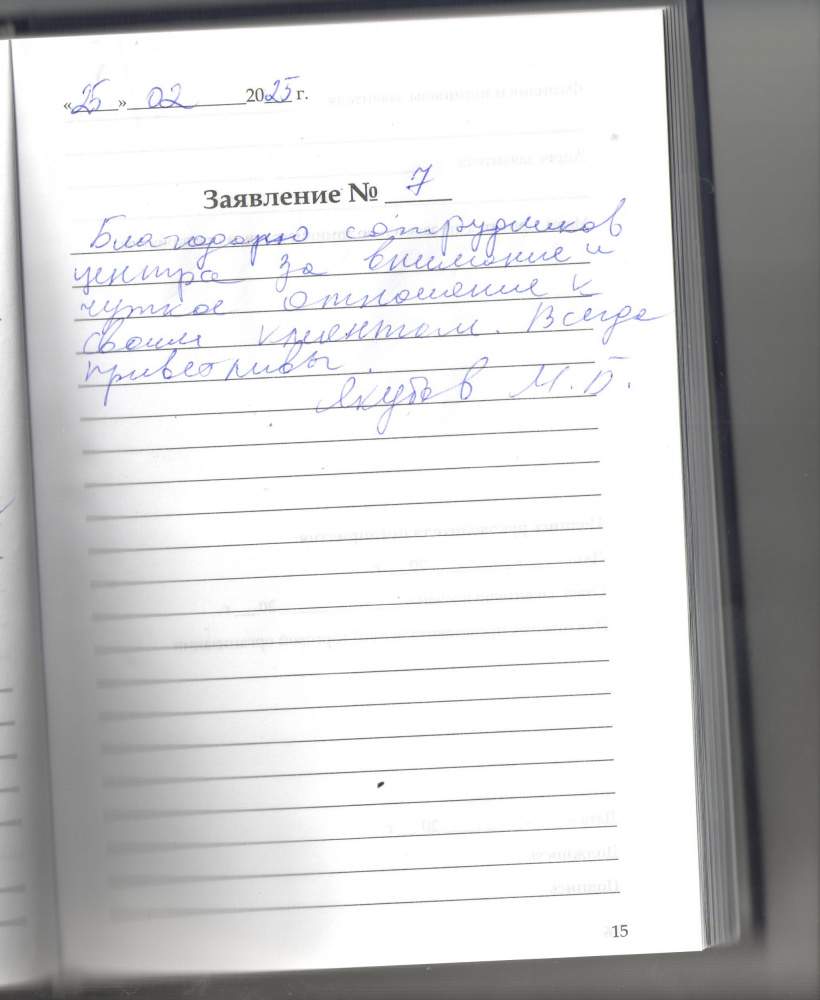 «25» 02 2025 г.
Заявление № 7
Благодарю сотрудников
центра за внимание и
чуткое отношение к
своим клиентам. Всегда
приветливы.
Якубов М.Б.
15